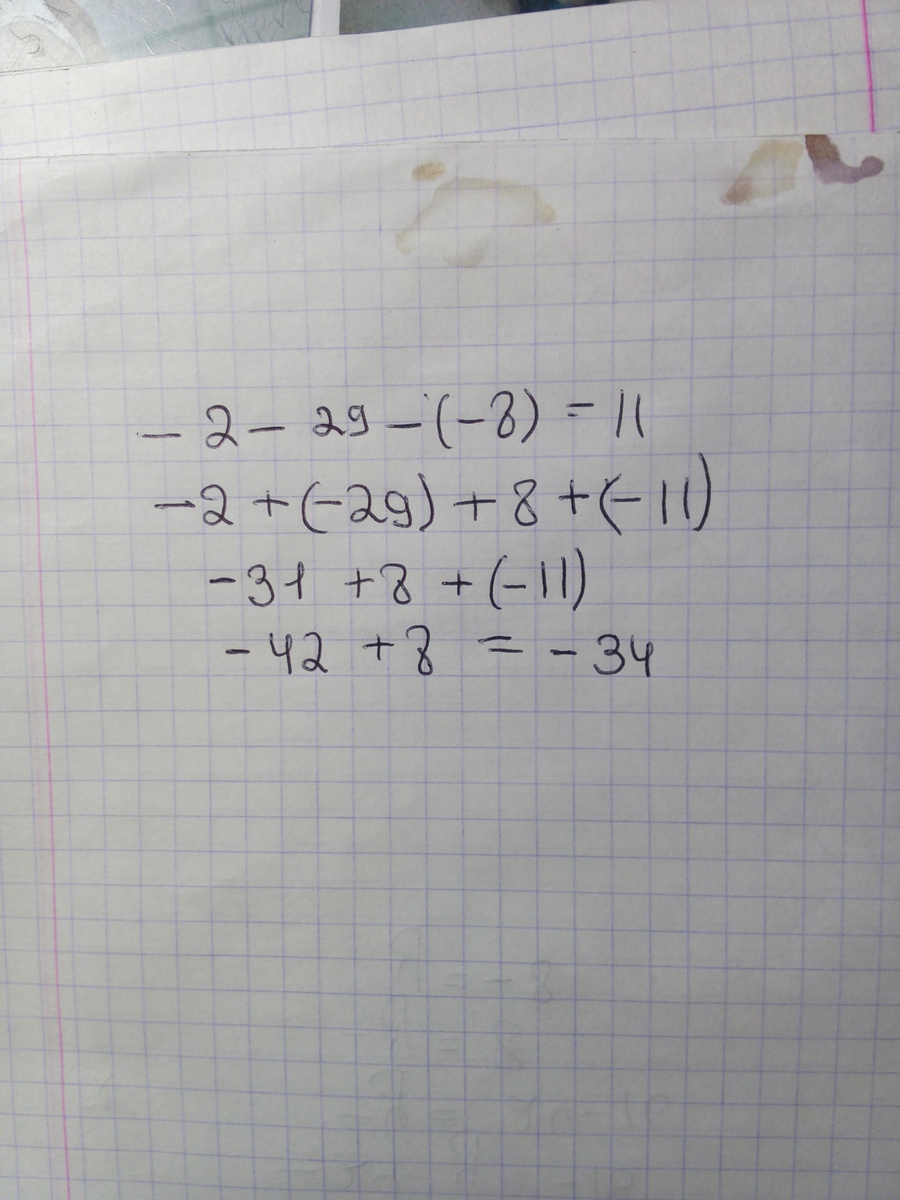 - 2 - 29 - (-8) = 11
-2 + (-29) + 8 + (-11)
-31 + 8 + (-11)
-42 + 8 = -34